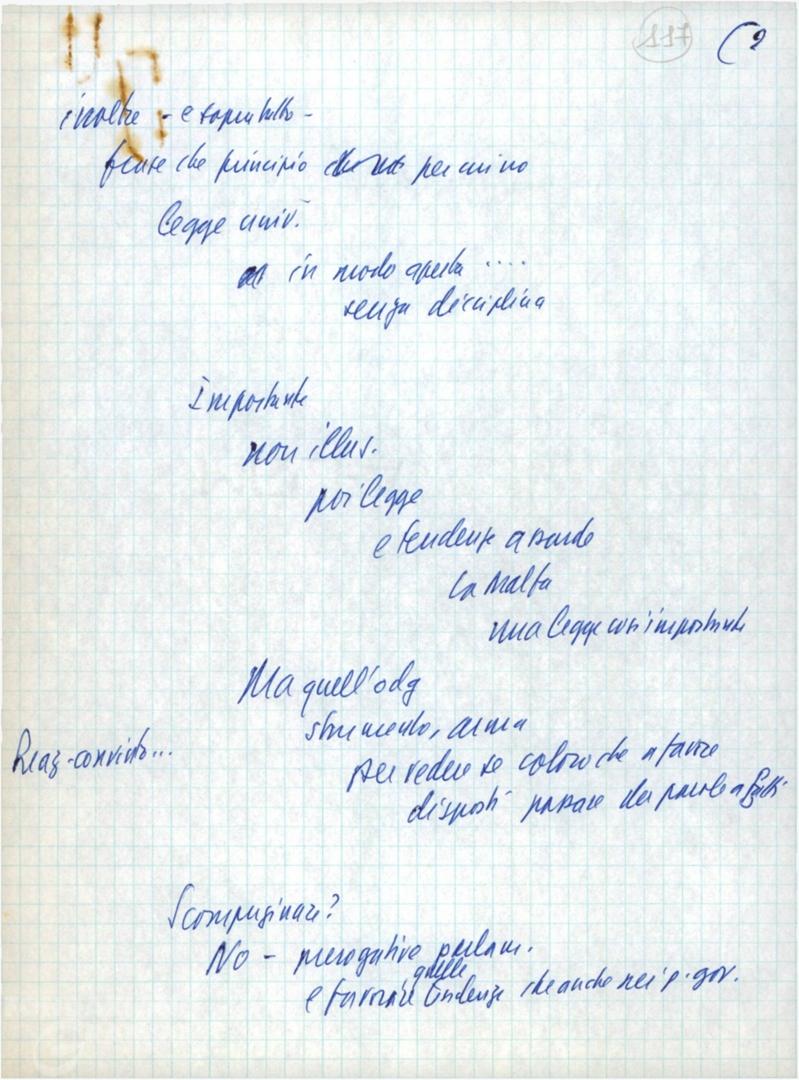 117 (2
inoltre - e soprattutto -
frase che principio permino
legge univ.
in modo aperto ....
senza disciplina
Importante
non illus.
poi legge
e tendenze assurde
La Malfa
una legge così importante
Ma quell'odg
strumento, arma
Reaz-convinto...
per vedere se coloro che a favore
disposti passare da parole a fatti
Scompaginare?
No - prerogative parlam.
e favorire quelle tendenze che anche nei p. gov.